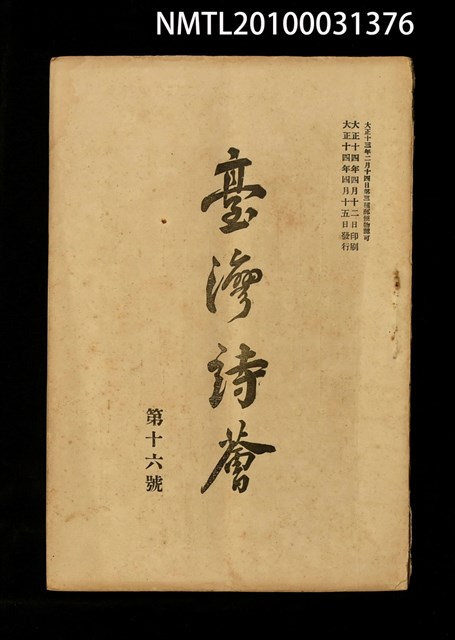 NMTL20100031376
大正十三年二月十四日第三種郵便物認可
大正十四年四月十二日印刷
大正十四年四月十五日發行
臺灣詩薈
第十六號